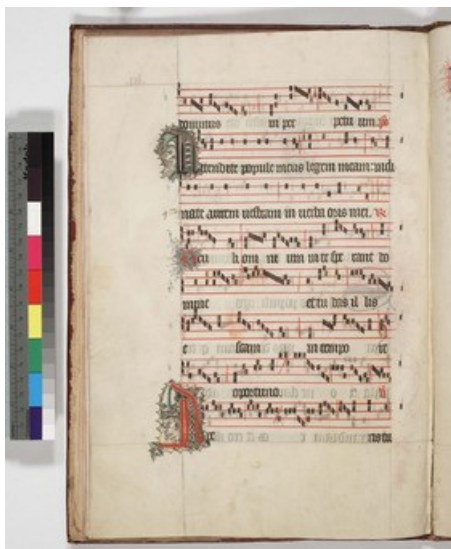 dominus in per petu um. ps
Attendite popule meus legem meam: incli
nate aurem vestram in verba oris mei. V
Ocu li om ni um in te spe rant do
mine et tu das il lis
e scam in tempo re
oportuno. V
Ape ris tu